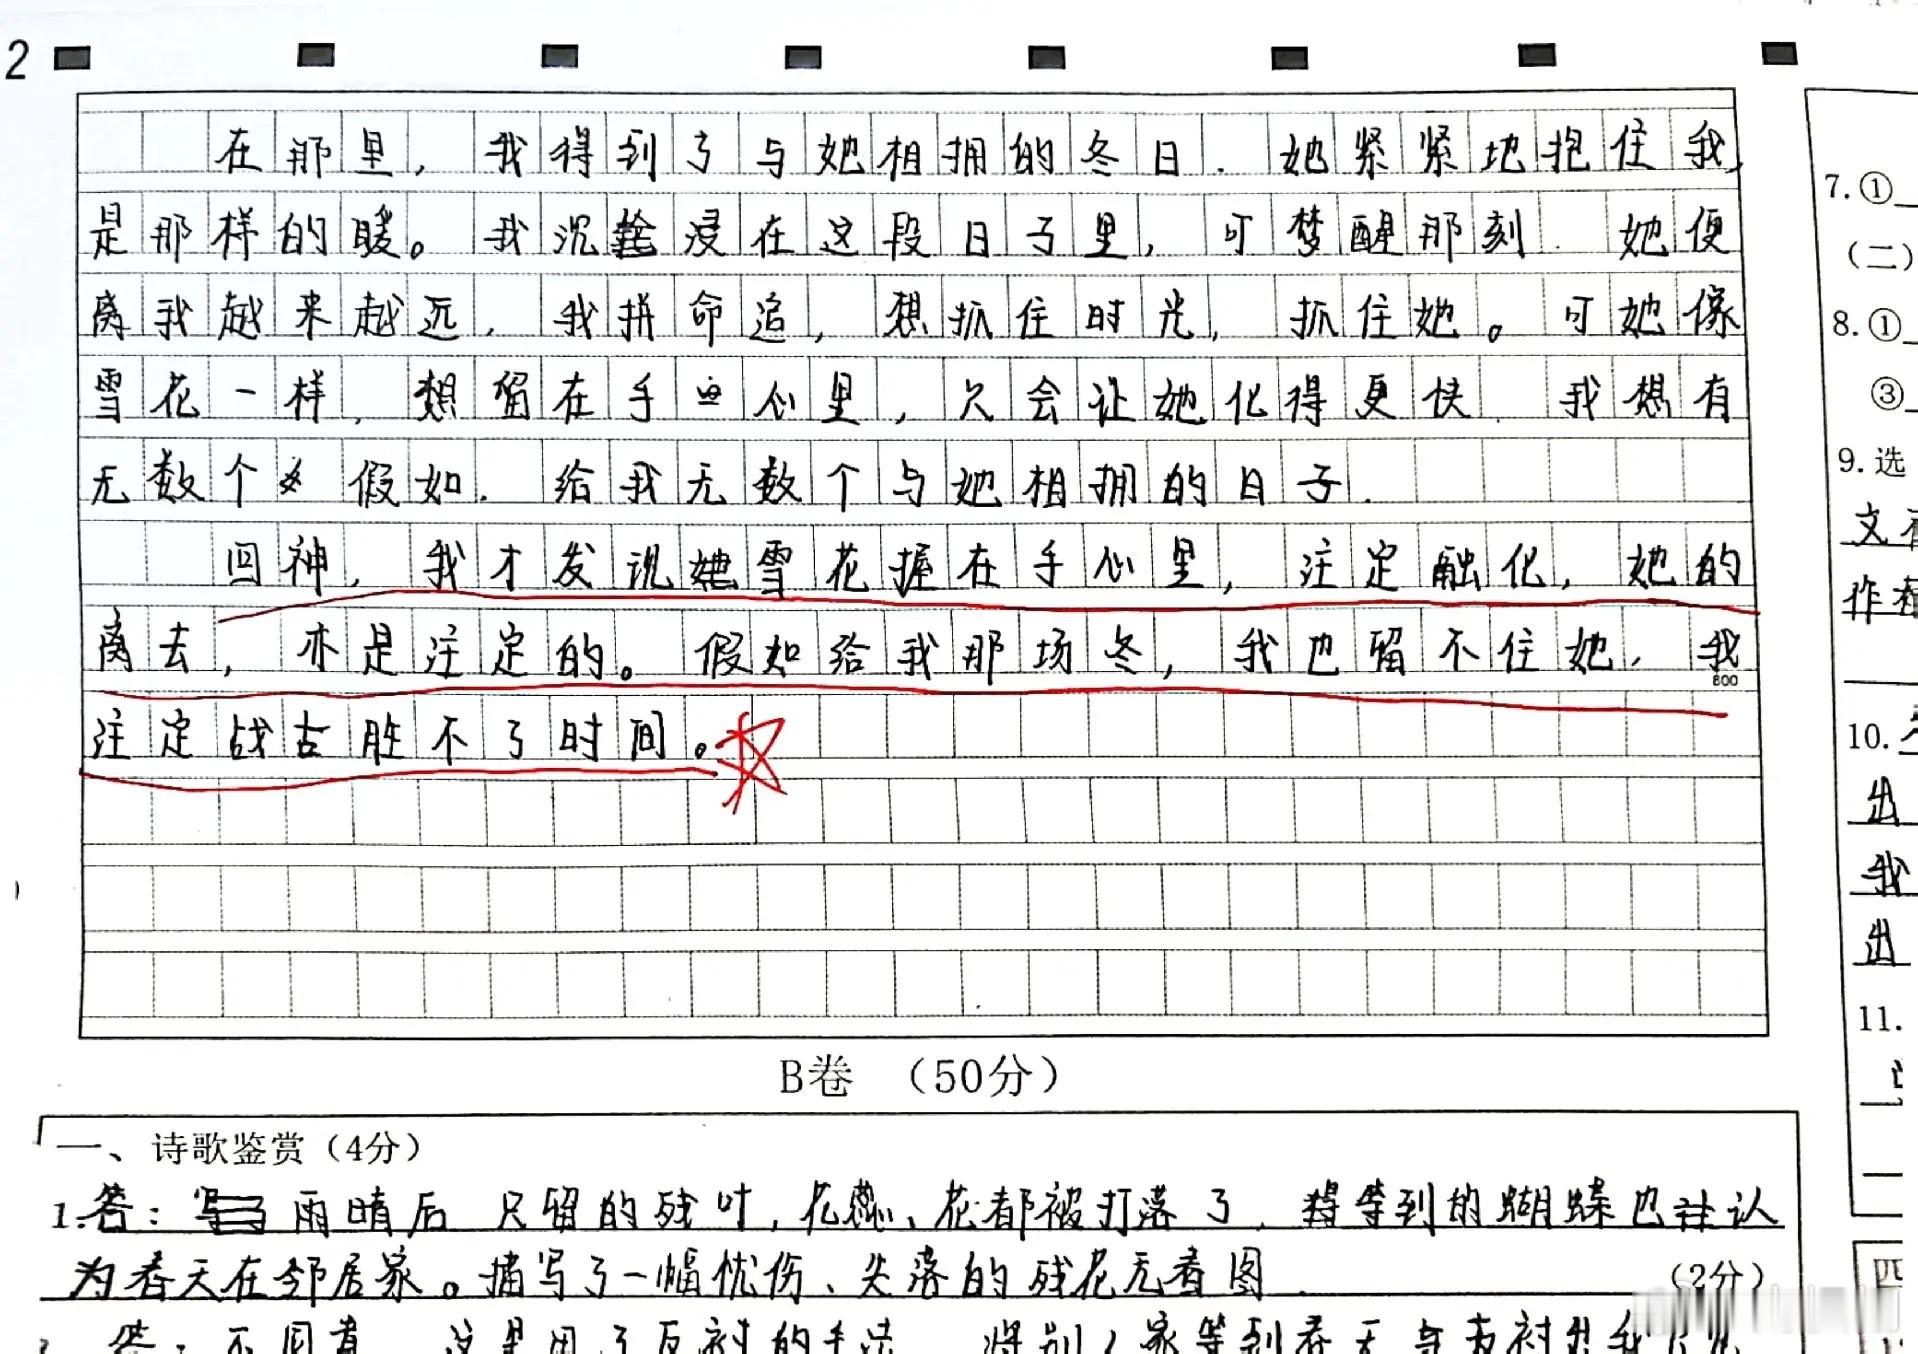 2
在那里，我得到了与她相拥的冬日．她紧紧地抱住我，
是那样的暖。我沉浸在这段日子里，可梦醒那刻．她便
离我越来越远．我拼命追，想抓住时光，抓住她。可她像
雪花一样，想留在手心里，只会让她化得更快．我想有
无数个假如．给我无数个与她相拥的日子．
回神，我才发说她雪花握在手心里，注定融化，她的
离去，亦是注定的。假如给我那场冬，我也留不住她．我
800
注定战胜不了时间。
B卷 （50分）
一、诗歌鉴赏（4分）
1.答：雨晴后只留的残叶，花蕊、花都被打落了．等到的蝴蝶也认
为春天在邻居家。描写了一幅忧伤、失落的残花无春图．
（2分）
答：不同意 这里用了反衬的手法
7.①
（二）
8.①
③
9.选
文
作
10.
出
我
出
11.
四